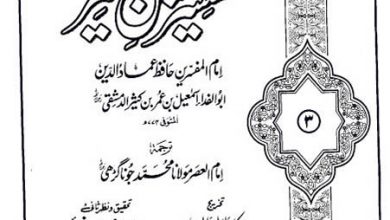 تفسیر ابن کثیر
امام المفسرین حافظ عماد الدین
ابو الفداء اسمٰعیل بن عمر بن کثیر الدمشقی
المتوفی ۷۷۴ھ
۳
ترجمہ
امام العصر مولانا محمد جوناگڑھی
تخریج
تحقیق و نظرثانی